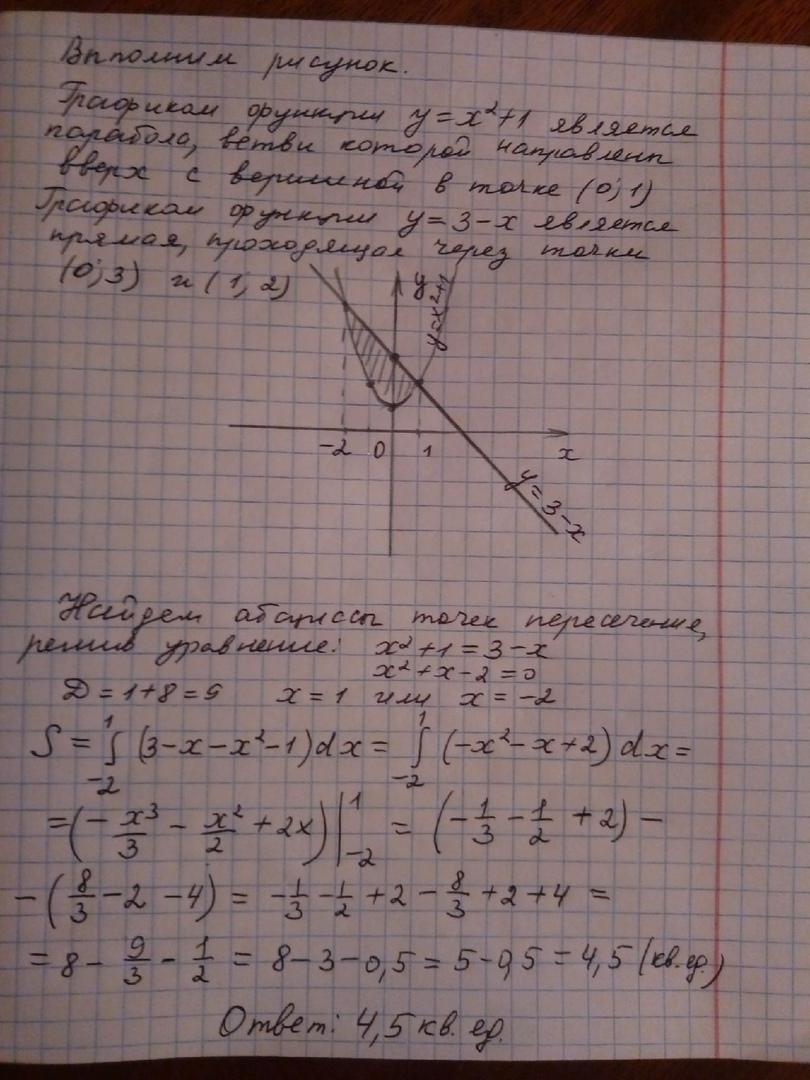 Выполним рисунок.
Графиком функции y=x²+1 является
парабола, ветви которой направлены
вверх с вершиной в точке (0; 1)
Графиком функции y=3-x является
прямая, проходящая через точки
(0; 3) и (1; 2)
y
y=x²+1
-2 0 1 x
y=3-x
Найдем абсциссы точек пересечение,
решив уравнение: x²+1=3-x
x²+x-2=0
D=1+8=9 x=1 или x=-2
S = ∫₋₂¹ (3-x-x²-1)dx = ∫₋₂¹ (-x²-x+2)dx =
=(-x³/3 - x²/2 + 2x)|₋₂¹ = (-1/3 - 1/2 + 2) -
-(8/3 - 2 - 4) = -1/3 - 1/2 + 2 - 8/3 + 2 + 4 =
= 8 - 9/3 - 1/2 = 8 - 3 - 0,5 = 5 - 0,5 = 4,5 (кв.ед.)
Ответ: 4,5 кв. ед.